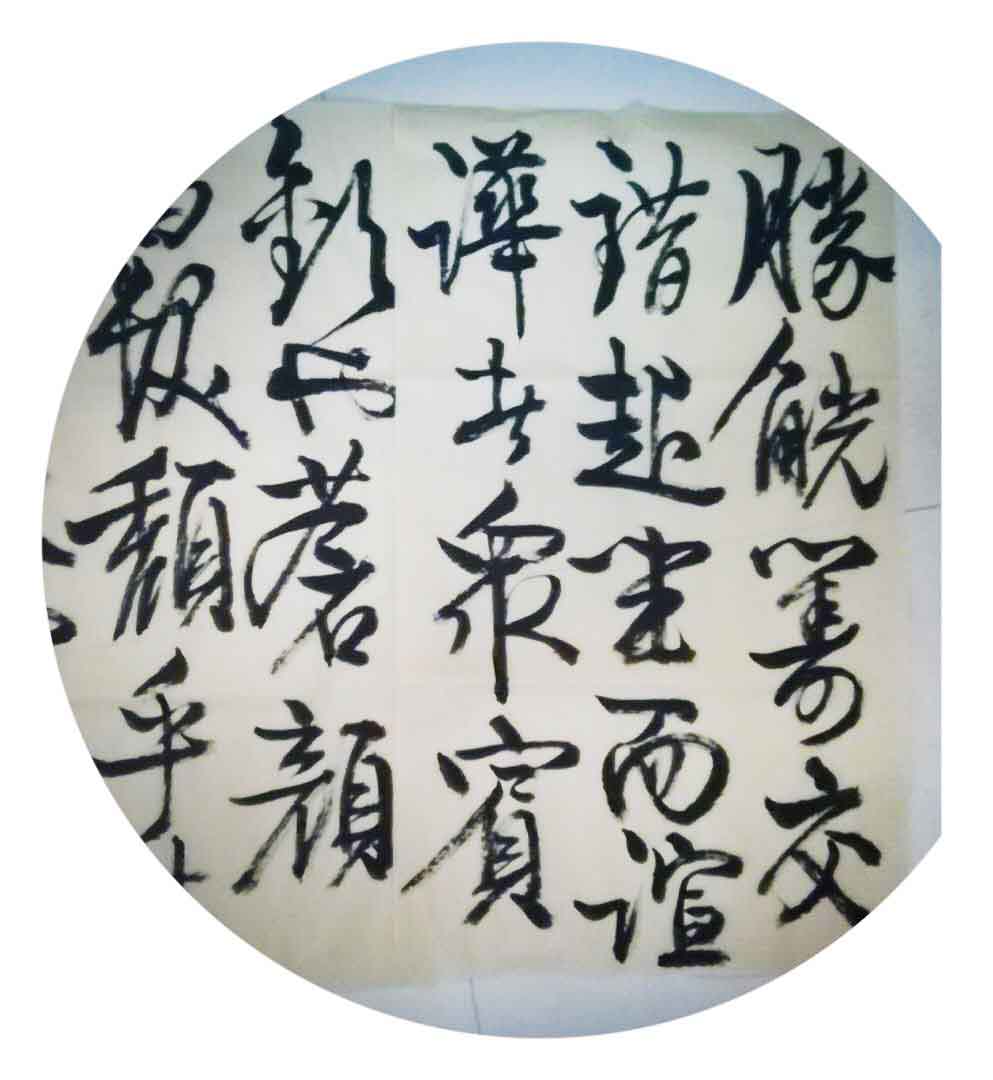 勝觥籌交
錯起坐而諠
譁者眾賓
歡也蒼顔
白髮頹乎